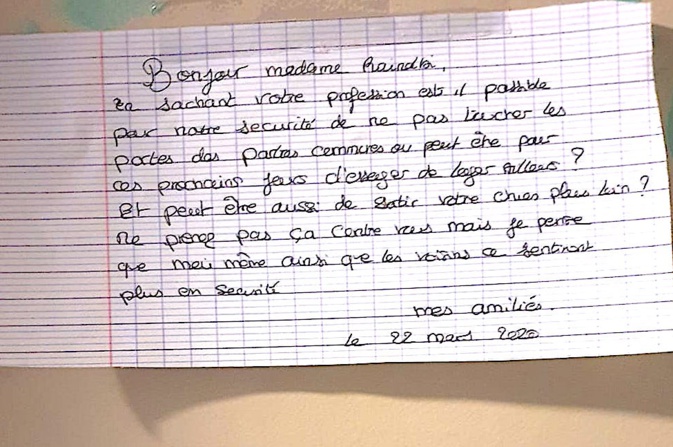 Bonjour madame
En sachant votre profession est il possible
pour notre securité de ne pas toucher les
portes des parties communes ou peut être pour
ces prochains jours d'essayer de loger ailleurs ?
Et peut être aussi de sortir votre chien plus loin ?
ne prenez pas ça contre vous mais je pense
que moi même ainsi que les voisins ce sentiront
plus en securité
mes amitiés.
le 22 mars 2020